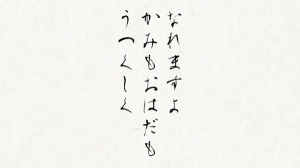 なれますよ
かみもおはだも
うつくしく